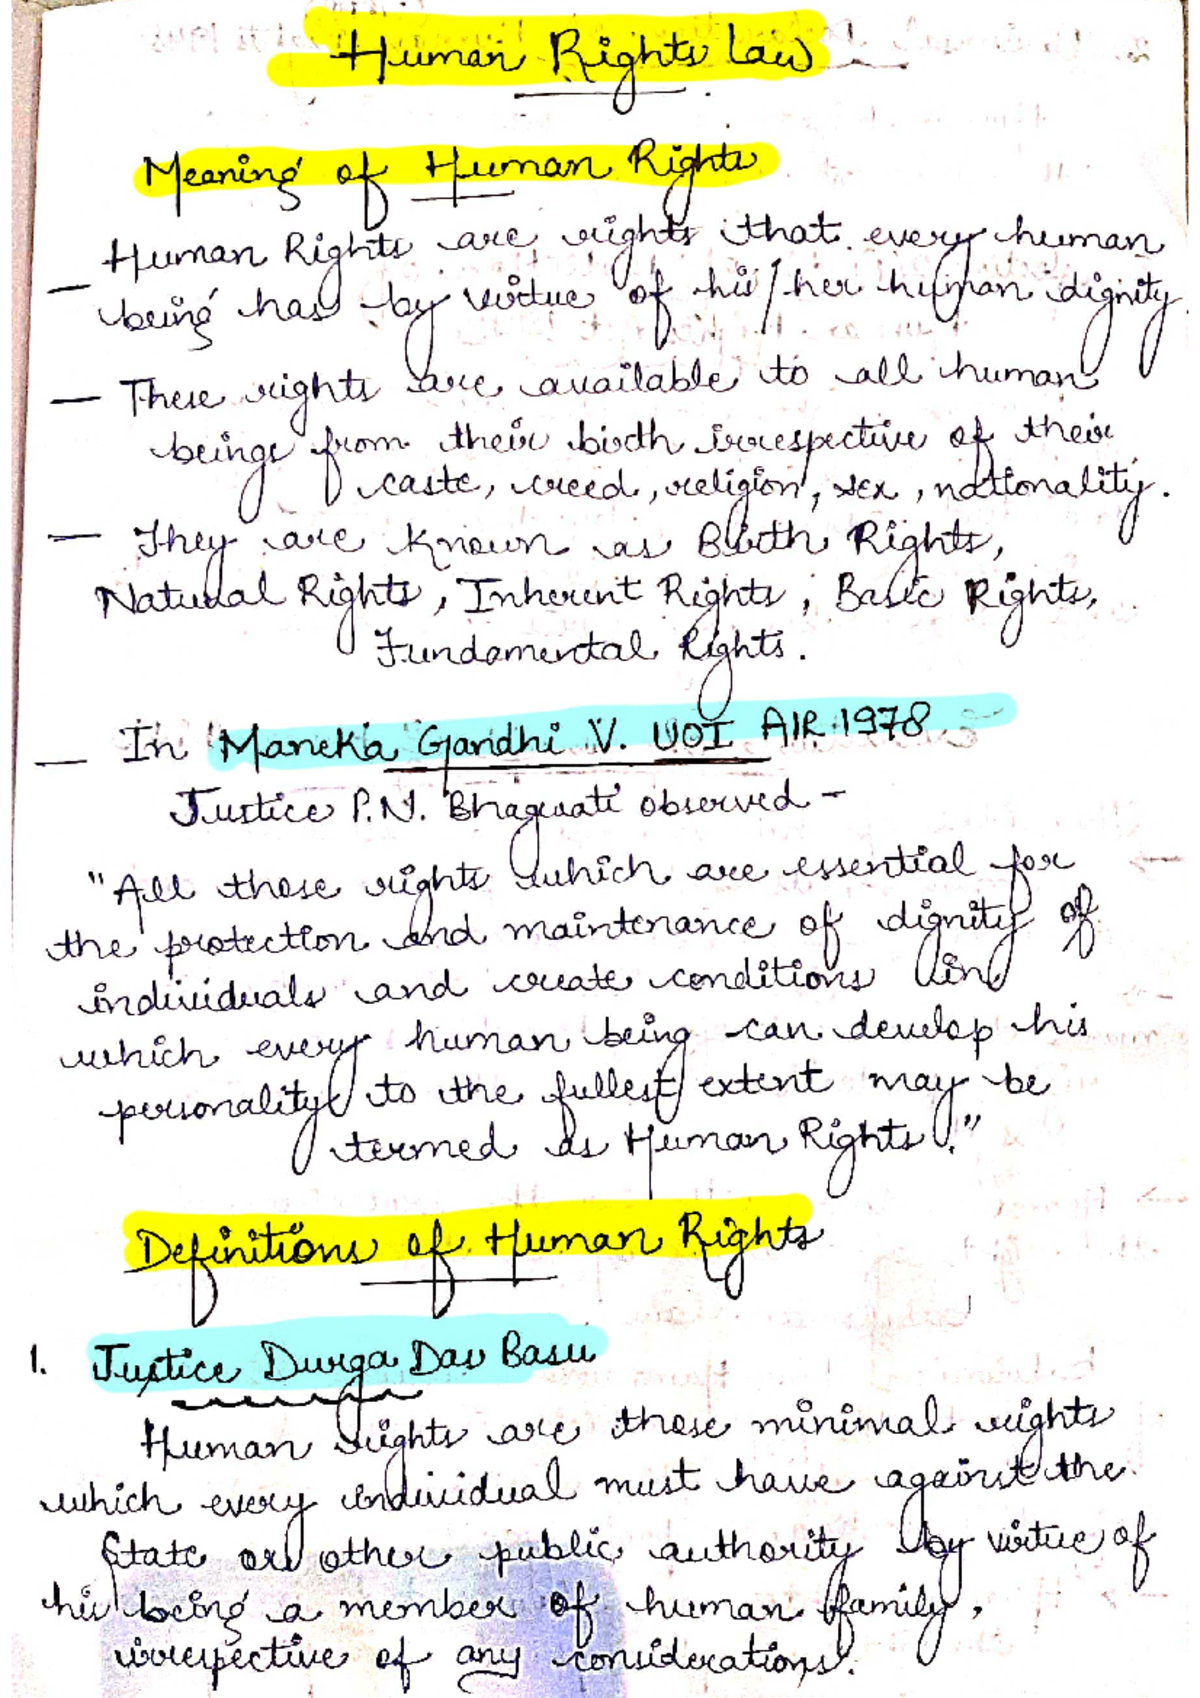 Human Rights Law
Meaning of Human Rights
— Human Rights are rights that every human
being has by virtue of his/her human dignity.
— These rights are available to all human
beings from their birth irrespective of their
caste, creed, religion, sex, nationality.
— They are known as Birth Rights,
Natural Rights, Inherent Rights, Basic Rights,
Fundamental Rights.
— In Maneka Gandhi V. UOI AIR 1978
Justice P.N. Bhagwati observed -
"All those rights which are essential for
the protection and maintenance of dignity of
individuals and create conditions in
which every human being can develop his
personality to the fullest extent may be
termed as Human Rights."
Definitions of Human Rights
1. Justice Durga Das Basu
Human rights are those minimal rights
which every individual must have against the
State or other public authority by virtue of
his being a member of human family,
irrespective of any considerations.